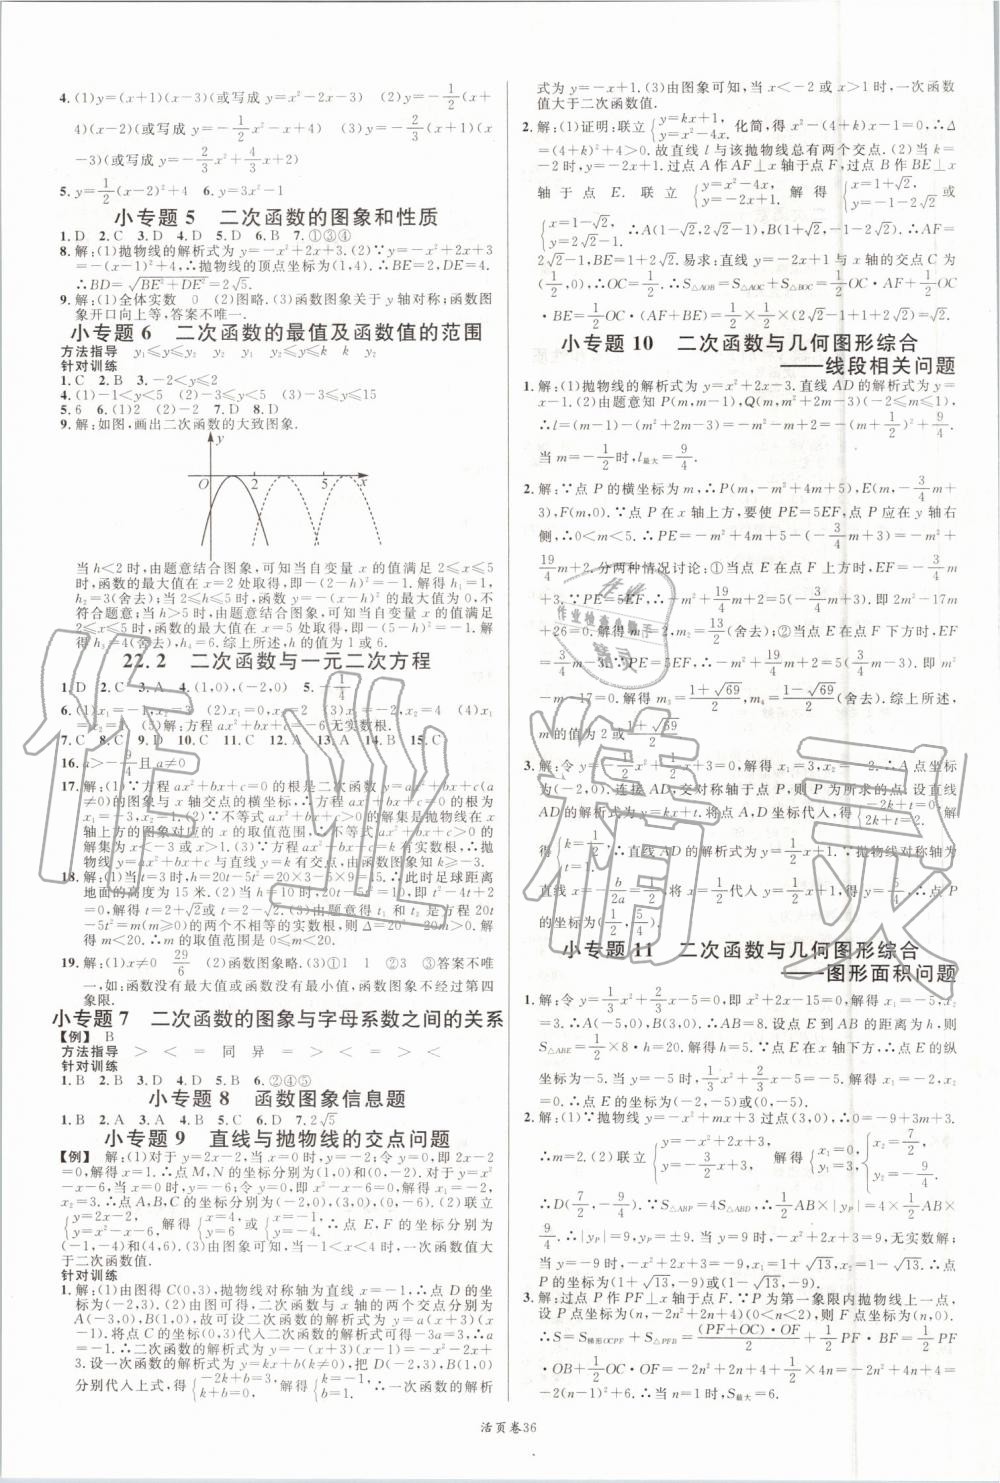 4.(1)y=(x+1)(x-3)(或写成y=x²-2x-3) (2)y=-1/2(x+
4)(x-2)(或写成y=-1/2x²-x+4) (3)y=-2/3(x+1)(x
-3)(或写成y=-2/3x²+4/3x+2)
5.y=1/2(x-2)²+4 6.y=3x²-1
小专题5 二次函数的图象和性质
1.D 2.C 3.D 4.D 5.D 6.B 7.①③④
8.解:(1)抛物线的解析式为y=-x²+2x+3.(2)∵y=-x²+2x+3
=-(x-1)²+4,∴抛物线的顶点坐标为(1,4).∴BE=2,DE=4.
∴BD=√(BE²+DE²)=2√5.
9.解:(1)全体实数 0 (2)图略.(3)函数图象关于y轴对称;函数图
象开口向上等,答案不唯一.
小专题6 二次函数的最值及函数值的范围
方法指导 y₁≤y≤y₂ y₂ y₁ k≤y≤y₂ k k y₂
针对训练
1.C 2.B 3.-2<y≤2
4.(1)-1<y<5 (2)-3≤y≤5 (3)-3≤y≤15
5.6 6.(1)2 (2)-2 7.D 8.D
9.解:如图,画出二次函数的大致图象.
y
O 2 5 x
当h<2时,由题意结合图象,可知当自变量x的值满足2≤x≤5
时,函数的最大值在x=2处取得,即-(2-h)²=-1.解得h₁=1,
h₂=3(舍去);当2≤h≤5时,函数y=-(x-h)²的最大值为0,不
符合题意;当h>5时,由题意结合图象,可知当自变量x的值满足
2≤x≤5时,函数的最大值在x=5处取得,即-(5-h)²=-1.解
得h₃=4(舍去),h₄=6.综上所述,h的值为1或6.
22.2 二次函数与一元二次方程
1.D 2.C 3.A 4.(1,0),(-2,0) 5.-1/4
6.(1)x₁=-1,x₂=3 (2)x₁=0,x₂=2 (3)x₁=x₂=1 (4)x₁
=-2,x₂=4 (5)解:方程ax²+bx+c=-6无实数根.
7.C 8.C 9.D 10.C 11.C 12.A 13.A 14.B 15.C
16.a>-9/4且a≠0
17.解:(1)∵方程ax²+bx+c=0的根是二次函数y=ax²+bx+c(a
≠0)的图象与x轴交点的横坐标,∴方程ax²+bx+c=0的根为
x₁=-3,x₂=1.(2)∵不等式ax²+bx+c>0的解集是抛物线在x
轴上方的图象对应的x的取值范围,∴不等式ax²+bx+c>0的
解集为x<-3或x>1.(3)∵方程ax²+bx+c=k有实数根,∴抛
物线y=ax²+bx+c与直线y=k有交点,由函数图象知k≥-3.
18.解:(1)当t=3时,h=20t-5t²=20×3-5×9=15.∴此时足球距离
地面的高度为15米.(2)当h=10时,20t-5t²=10,即t²-4t+2
=0,解得t=2+√2或t=2-√2.(3)由题意得t₁和t₂是方程20t
-5t²=m的两个不相等的实数根,则Δ=20²-20m>0.解
得m<20.∴m的取值范围是0≤m<20.
19.解:(1)x≠0 29/6 (2)函数图象略.(3)①1 1 ③答案不唯
一,如:函数没有最大值或函数没有最小值,函数图象不经过第四
象限.
小专题7 二次函数的图象与字母系数之间的关系
【例】 B
方法指导 > < = 同 异 = > < = > <
针对训练
1.B 2.B 3.D 4.D 5.B 6.②④⑤
小专题8 函数图象信息题
1.B 2.A 3.A 4.D 5.C 6.D 7.2√5
小专题9 直线与抛物线的交点问题
【例】 解:(1)对于y=2x-2,当x=0时,y=-2.当y=0,即2x-2
=0,解得x=1.∴点M,N的坐标分别为(1,0)和(0,-2).对于y=x²
-x-6,当x=0时,y=-6;当y=0,即x²-x-6=0,解得x₁=-2,
x₂=3.∴点A,B,C的坐标分别为(-2,0),(3,0),(0,-6).(2)联立
{y=2x-2, y=x²-x-6, 解得{x=4, y=6 或{x=-1, y=-4. ∴点E,F的坐标分别为
(-1,-4)和(4,6).(3)由图象可知,当-1<x<4时,一次函数值大
于二次函数值.
针对训练
1.解:(1)由图得C(0,3),抛物线对称轴为直线x=-1.∴点D的坐
标为(-2,3).(2)由图象可得,二次函数与x轴的两个交点分别为
A(-3,0),B(1,0),故可设二次函数的解析式为y=a(x+3)(x
-1).将点C的坐标(0,3)代入二次函数可得-3a=3,∴a=
-1.∴二次函数的解析式为y=-(x+3)(x-1)=-x²-2x+
3.设一次函数的解析式为y=kx+b,把D(-2,3),B(1,0)
分别代入上式,得{-2k+b=3, k+b=0. 解得{k=-1, b=1. ∴一次函数的解析
式为y=-x+1.(3)由图象可知,当x<-2或x>1时,一次函数
值大于二次函数值.
2.解:(1)证明:联立{y=kx+1, y=x²-4x. 化简,得x²-(4+k)x-1=0,∴Δ
=(4+k)²+4>0.故直线l与该抛物线总有两个交点.(2)当k=
-2时,y=-2x+1.过点A作AF⊥x轴于点F,过点B作BE⊥x
轴于点E.联立{y=x²-4x, y=-2x+1. 解得{x=1+√2, y=-1-2√2 或
{x=1-√2, y=2√2-1. ∴A(1-√2,2√2-1),B(1+√2,-1-2√2).∴AF=
2√2-1,BE=1+2√2.易求:直线y=-2x+1与x轴的交点C为
(1/2,0),∴OC=1/2.∴S△AOB=S△AOC+S△BOC=1/2OC·AF+1/2
OC·BE=1/2OC·(AF+BE)=1/2×1/2×(2√2-1+1+2√2)=√2.
小专题10 二次函数与几何图形综合
——线段相关问题
1.解:(1)抛物线的解析式为y=x²+2x-3.直线AD的解析式为y=
x-1.(2)由题意知P(m,m-1),Q(m,m²+2m-3)(-2≤m≤1),
∴l=(m-1)-(m²+2m-3)=-m²-m+2=-(m+1/2)²+9/4.
当m=-1/2时,l最大=9/4.
2.解:∵点P的横坐标为m,∴P(m,-m²+4m+5),E(m,-3/4m+
3),F(m,0).∵点P在x轴上方,要使PE=5EF,点P应在y轴右
侧,∴0<m<5.∴PE=-m²+4m+5-(-3/4m+3)=-m²+
19/4m+2.分两种情况讨论:①当点E在点F上方时,EF=-3/4m
+3.∵PE=5EF,∴-m²+19/4m+2=5(-3/4m+3),即2m²-17m
+26=0.解得m₁=2,m₂=13/2(舍去);②当点E在点F下方时,EF
=3/4m-3.∵PE=5EF,∴-m²+19/4m+2=5(3/4m-3),即m²
-m-17=0.解得m₃=(1+√69)/2,m₄=(1-√69)/2(舍去).综上所述,
m的值为2或(1+√69)/2.
坐标为(-2,0).连接AD,交对称轴于点P,则P为所求的点.设直线
AD的解析式为y=kx+t.将点A,D坐标代入,得{-2k+t=0, 2k+t=2. 解
得{k=1/2, t=1. ∴直线AD的解析式为y=1/2x+1.∵抛物线对称轴为
直线x=-b/2a=1/2,将x=1/2代入y=1/2x+1,得y=5/4.∴点P
的坐标为(1/2,5/4).
小专题11 二次函数与几何图形综合
——图形面积问题
1.解:令y=0,即1/2x²-3/2x-5=0,即x²-2x-15=0,解得x₁=-5,x₂
=3.∴A(-5,0),B(3,0).∴AB=8.设点E到AB的距离为h,则
S△ABE=1/2×8·h=20.解得h=5.∵点E在x轴下方,∴点E的纵
坐标为-5.∴点E的坐标为(-2,-5)或(0,-5).
2.解:(1)∵抛物线y=-x²+mx+3过点(3,0),∴0=-9+3m+3.
∴m=2.(2)联立{y=-x²+2x+3, y=-3/2x+3. 解得{x₁=0, y₁=3, {x₂=7/2, y₂=-9/4.
∴D(7/2,-9/4).∵S△ABP=4S△ABD,∴1/2AB×|yP|=4×1/2AB×
9/4.∴|yP|=9,yP=±9.当y=9时,-x²+2x+3=9,无实数解;
当y=-9时,-x²+2x+3=-9,x₁=1+√13,x₂=1-√13.∴点
P(1+√13,-9)或P(1-√13,-9).
3.解:过点P作PF⊥x轴于点F.∵P为第一象限内抛物线上一点,
设P点坐标为(n,-2n²+2n+4)(0<n<2),则F点坐标为(n,0).
∴S=S梯形OCPF+S△PFB=(PF+OC)·OF/2+1/2PF·BF=1/2PF
·OB+1/2OC·OF=-2n²+2n+4+1/2×4n=-2n²+4n+4=
-2(n-1)²+6.∴当n=1时,S最大=6.
活页卷36